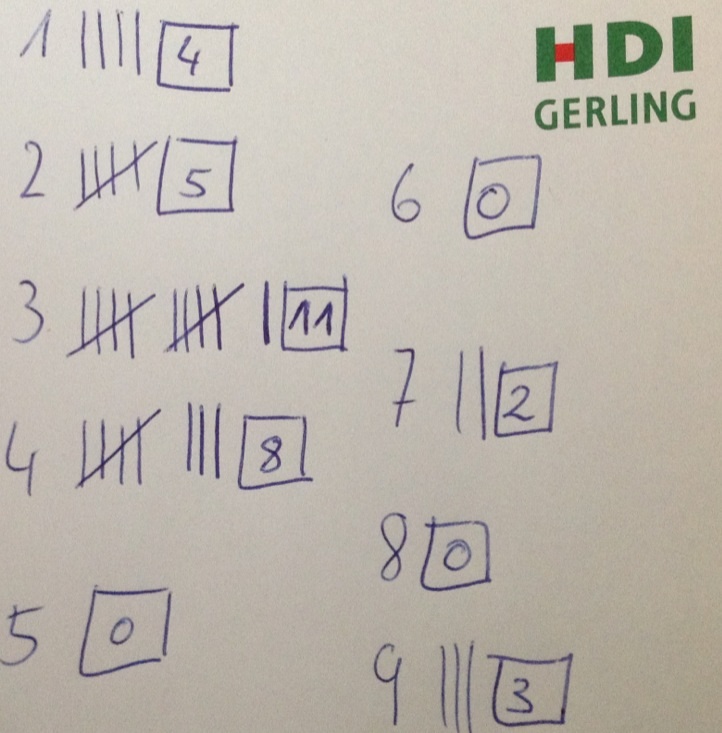 HDI
GERLING
1 |||| 4
2 5
3 | 11
4 ||| 8
5 0
6 0
7 || 2
8 0
9 ||| 3